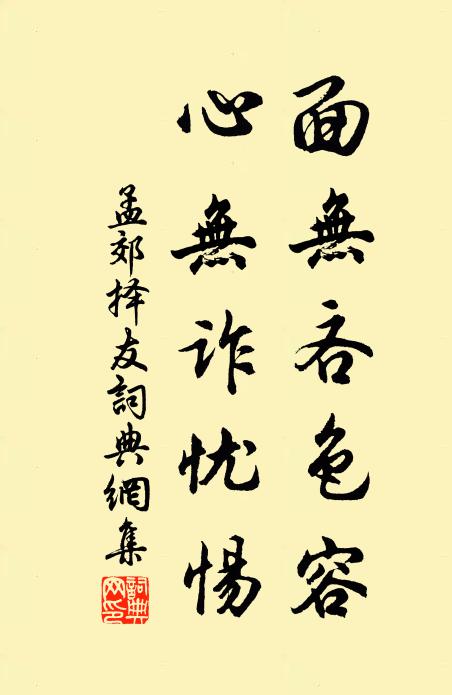 面無吝色容
心無詐忧惕
孟郊择友詞典網集
詞典网印